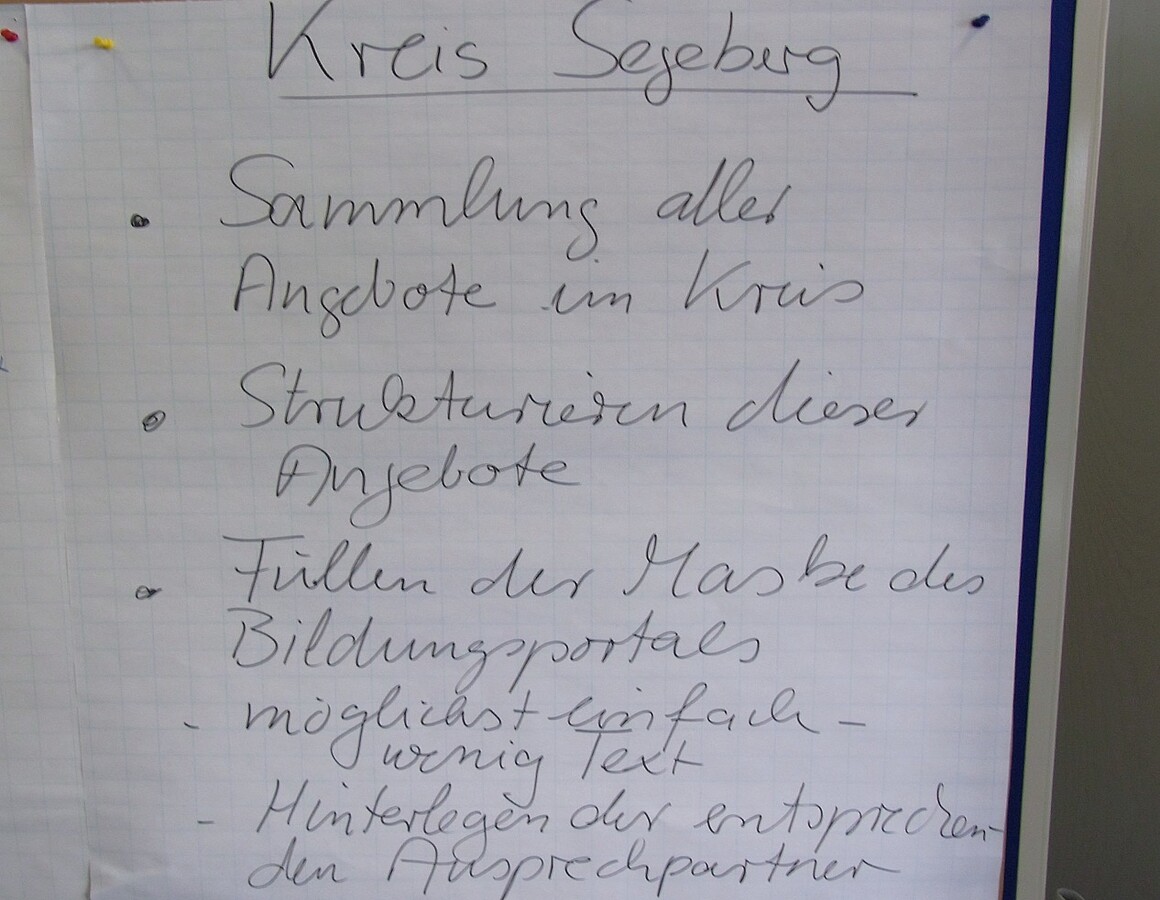 Kreis Segeberg
• Sammlung aller
Angebote im Kreis
• Strukturieren dieser
Angebote
• Füllen der Maske des
Bildungsportals
- möglichst einfach -
wenig Text
- Hinterlegen der entsprechen-
den Ansprechpartner